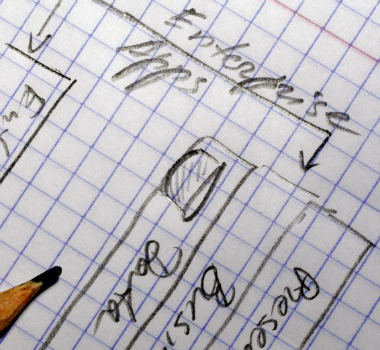 Enterprise
Apps
Data
Busi
Prese